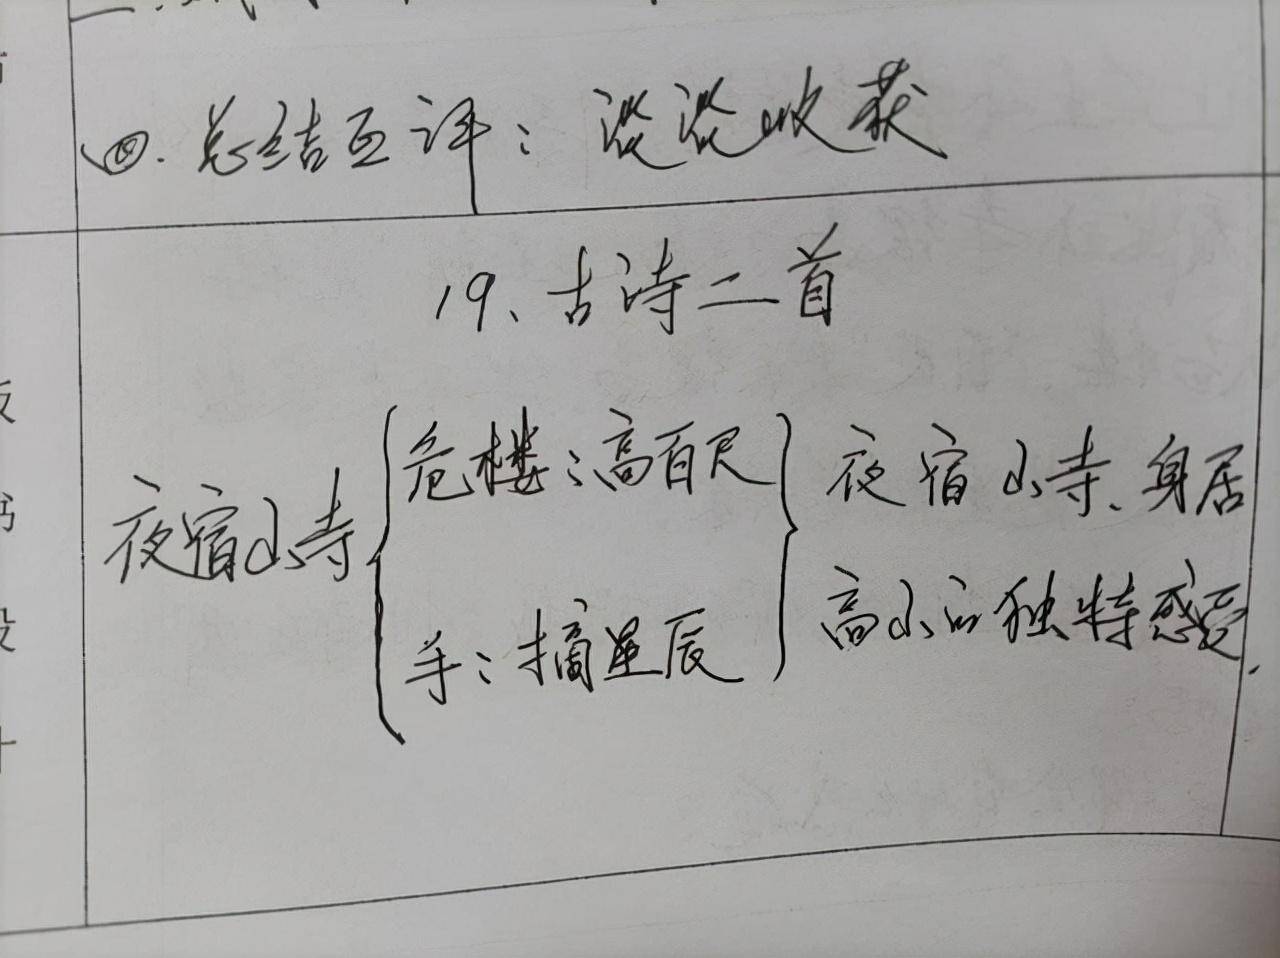 四.总结互评：谈谈收获
19、古诗二首
夜宿山寺
危楼：高百尺
手：摘星辰
夜宿山寺、身居
高山的独特感受.
板
书
设
计